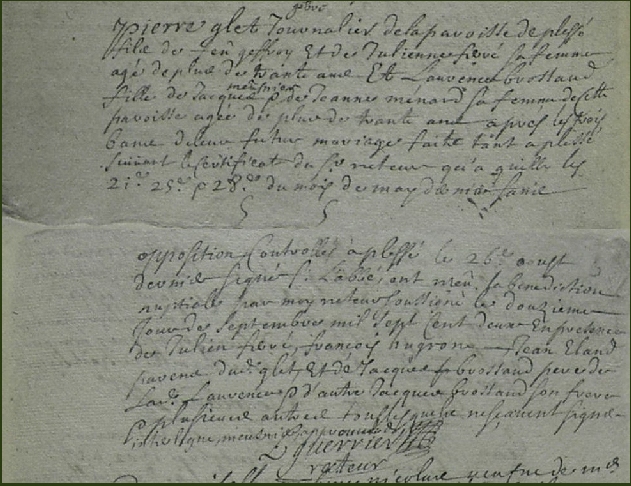 pierre glet Journalier de la paroisse de plessé
fils de feu geffroy Et de Julienne fievé sa femme
agé de plus de trante ans Et Laurence brossaud
meusnier
fille de Jacques & de Jeanne ménard sa femme de cette
paroisse agée de plus de trante ans apres les trois
bans de leur futur mariage faits tant a plessé
suivant le certificat du Sr recteur qu'a guilly les
21e 25e & 28e du mois de may dernier sans
opposition Controllés à plessé le 26e aoust
dernier signé f. Labbé, ont receu la benediction
nuptiale par moy recteur soussigné le douzieme
Jour de septembre mil sept cent deux En presence
de Julien fievé, françois Jean Eland
parens dudit glet, Et de Jacques brossaud pere de
Laditte Laurence & d'autre Jacques brossaud son frere
& plusieurs autres tous lesquels ne sçavent signer
interligne, meusnier, approuvé
guerrier
recteur
nicolas veufve de